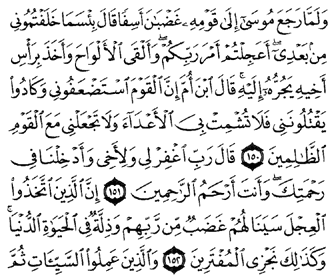 وَلَمَّا رَجَعَ مُوسَىٰٓ إِلَىٰ قَوْمِهِۦ غَضْبَٰنَ أَسِفًا قَالَ بِئْسَمَا خَلَفْتُمُونِي
مِنۢ بَعْدِيٓ أَعَجِلْتُمْ أَمْرَ رَبِّكُمْ وَأَلْقَى ٱلْأَلْوَاحَ وَأَخَذَ بِرَأْسِ
أَخِيهِ يَجُرُّهُۥٓ إِلَيْهِ قَالَ ٱبْنَ أُمَّ إِنَّ ٱلْقَوْمَ ٱسْتَضْعَفُونِي وَكَادُوا۟
يَقْتُلُونَنِي فَلَا تُشْمِتْ بِيَ ٱلْأَعْدَآءَ وَلَا تَجْعَلْنِي مَعَ ٱلْقَوْمِ
ٱلظَّٰلِمِينَ ١٥٠ قَالَ رَبِّ ٱغْفِرْ لِي وَلِأَخِي وَأَدْخِلْنَا فِي
رَحْمَتِكَ وَأَنتَ أَرْحَمُ ٱلرَّٰحِمِينَ ١٥١ إِنَّ ٱلَّذِينَ ٱتَّخَذُوا۟
ٱلْعِجْلَ سَيَنَالُهُمْ غَضَبٌ مِّن رَّبِّهِمْ وَذِلَّةٌ فِي ٱلْحَيَوٰةِ ٱلدُّنْيَا
وَكَذَٰلِكَ نَجْزِي ٱلْمُفْتَرِينَ ١٥٢ وَٱلَّذِينَ عَمِلُوا۟ ٱلسَّيِّـَٔاتِ ثُمَّ